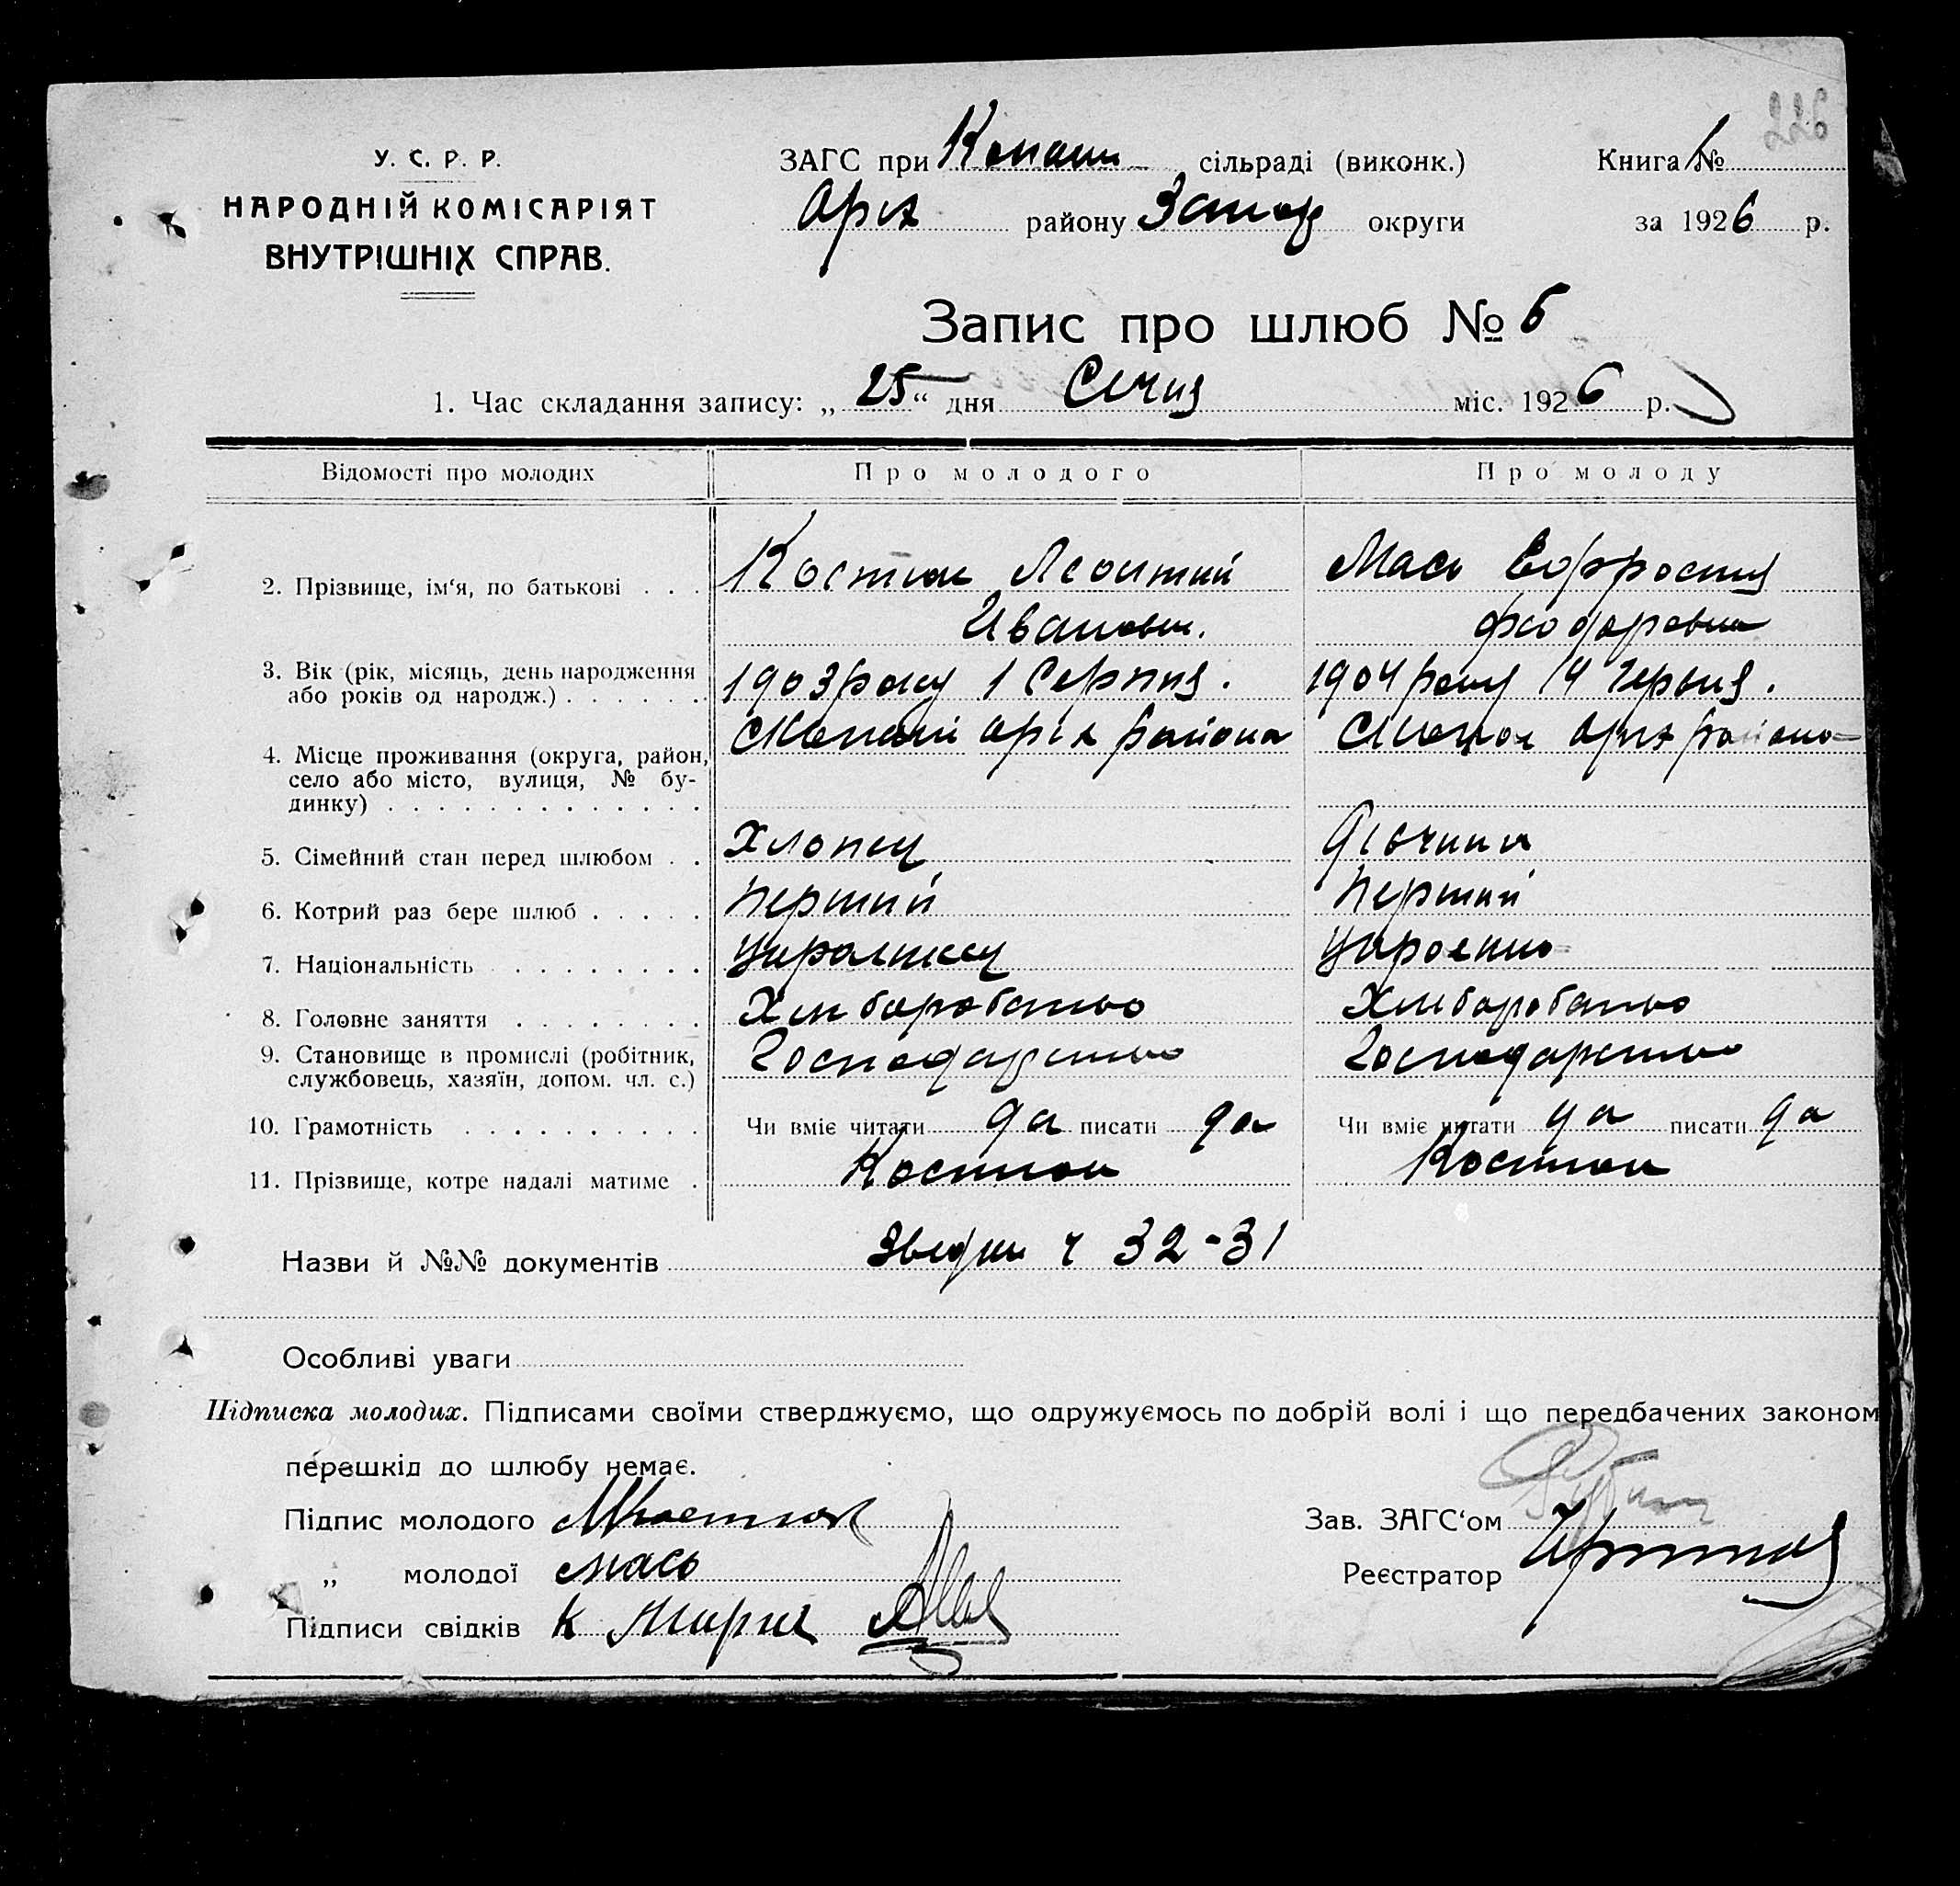 226
У. С. Р. Р.
НАРОДНІЙ КОМІСАРІЯТ
ВНУТРІШНІХ СПРАВ.
ЗАГС при Копани сільраді (виконк.) Книга №
Оріх району Запор округи за 1926 р.
Запис про шлюб № 6
1. Час складання запису: „25“ дня Січня міс. 1926 р.
Відомості про молодих Про молодого Про молоду
2. Прізвище, ім‘я, по батькові . . . Костюк Леонтий Мась Ефросиня
Иванович. Фйодоровна
3. Вік (рік, місяць, день народження 1903 року 1 Серпня. 1904 року 14 Червня.
або років од народж.) . . . . . .
4. Місце проживання (округа, район, С Копани Оріх района Оріх района
село або місто, вулиця, № бу-
динку) . . . . . . . . . . . . .
5. Сімейний стан перед шлюбом . . Хлопец Дівчина
6. Котрий раз бере шлюб . . . . . Перший Перший
7. Національність . . . . . . . . Українец Україн
8. Головне заняття . . . . . . . . Хліборобство Хліборобство
9. Становище в промислі (робітник, Господарство Господарство
службовець, хазяїн, допом. чл. с.)
10. Грамотність . . . . . . . . . . Чи вміє читати да писати да Чи вміє читати да писати да
11. Прізвище, котре надалі матиме . Костюк Костюк
Назви й №№ документів 32-31
Особливі уваги
Підписка молодих. Підписами своїми стверджуємо, що одружуємось по добрій волі і що передбачених законом
перешкід до шлюбу немає.
Підпис молодого Костюк Зав. ЗАГС‘ом
„ молодої Мась Реєстратор
Підписи свідків К